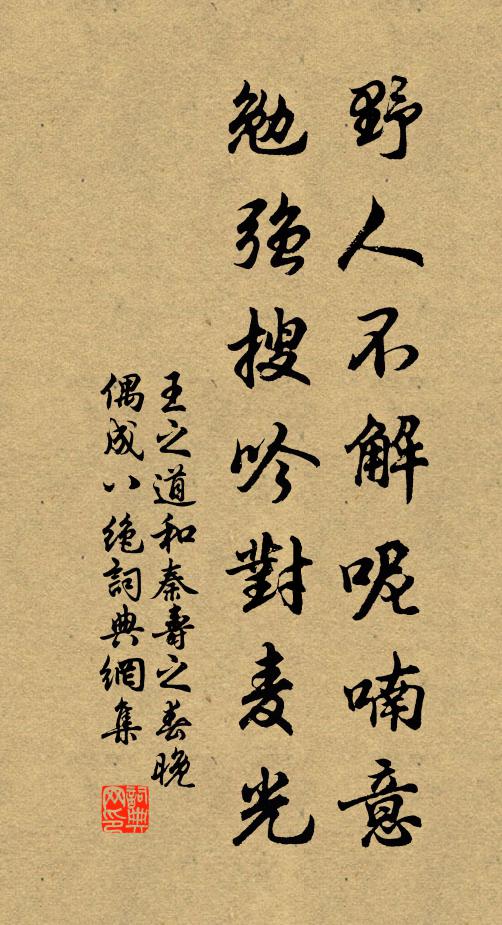 野人不解呢喃意
勉强搜吟對麦光
王之道和秦壽之春晚
偶成八絶詞典網集
詞典
网印